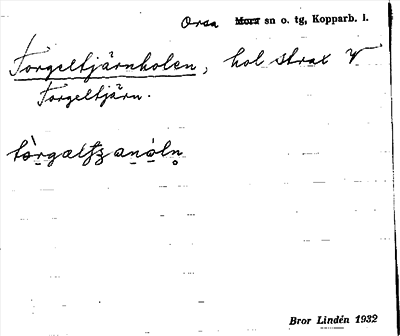 Orsa Mora sn o. tg, Kopparb. l.
Torgeltjärnholen, hol strax V
Torgeltjärn.
Bror Lindén 1932